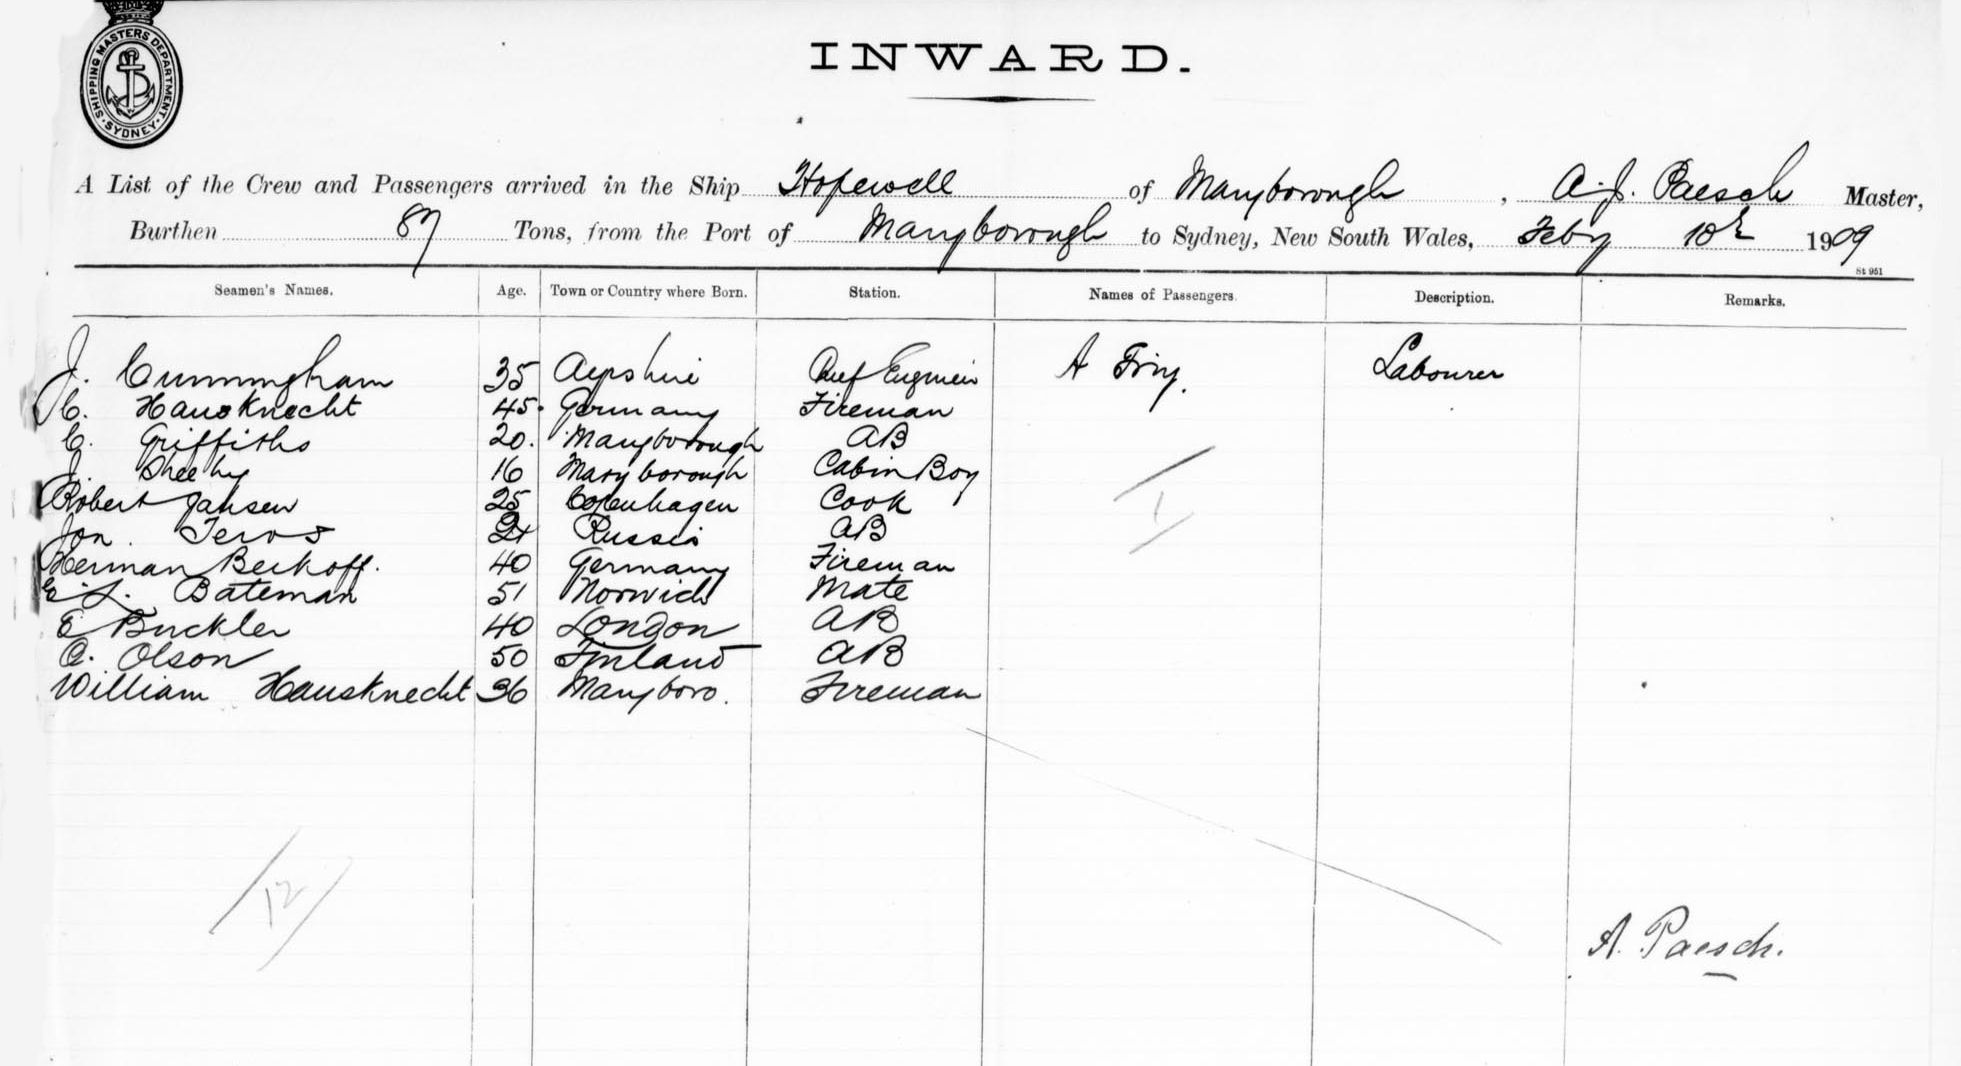 SHIPPING MASTERS DEPARTMENT. SYDNEY.
INWARD.
A List of the Crew and Passengers arrived in the Ship Hopewell of Maryborough, A. J. Paesch Master,
Burthen 87 Tons, from the Port of Maryborough to Sydney, New South Wales, Feby 10th 1909
St 951
Seamen's Names. Age. Town or Country where Born. Station. Names of Passengers. Description. Remarks.
J. Cunningham 35 Ayrshire Chief Engineer A Labourer
C. Hausknecht 45. Germany Fireman
C. Griffiths 20. Maryborough AB
J. Sheehy 16 Maryborough Cabin Boy
Robert Jansen 25 Copenhagen Cook
Jon. Russia AB
Herman Beckoff. 40 Germany Fireman
E. L. Bateman 51 Norwich Mate
E Buckler 40 London AB
O. Olson 50 Finland AB
William Hausknecht 36 Maryboro. Fireman
1
12
A. Paesch.